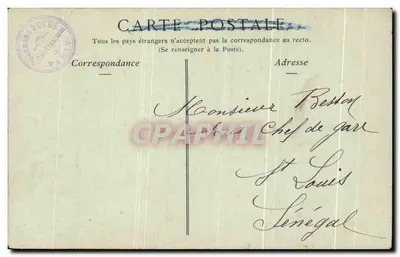 CARTE POSTALE
Tous les pays étrangers n'acceptent pas la correspondance au recto.
(Se renseigner à la Poste).
Correspondance
Adresse
Monsieur Besson
Sous Chef de gare
St Louis
Sénégal
CPAPHIL.com